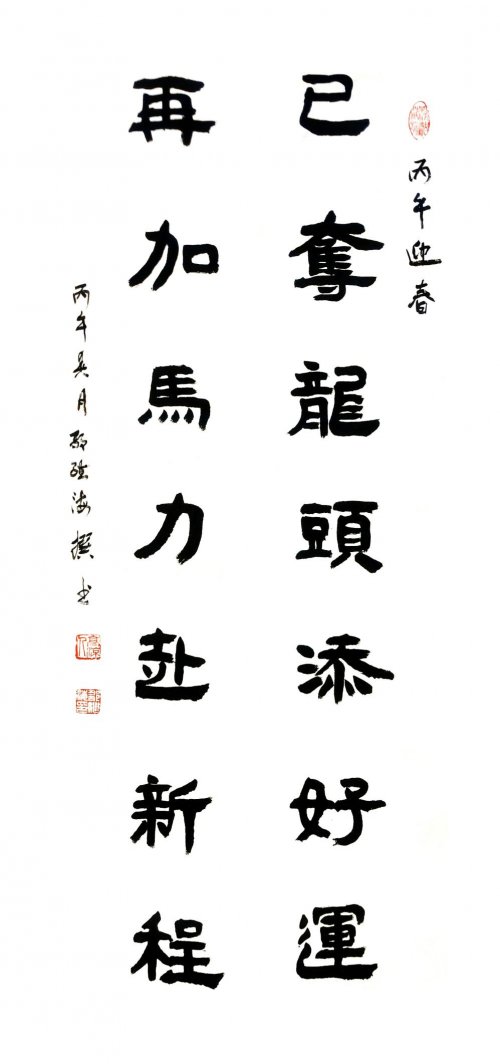 丙午迎春
已奪龍頭添好運
再加馬力赴新程
丙午月海撰书